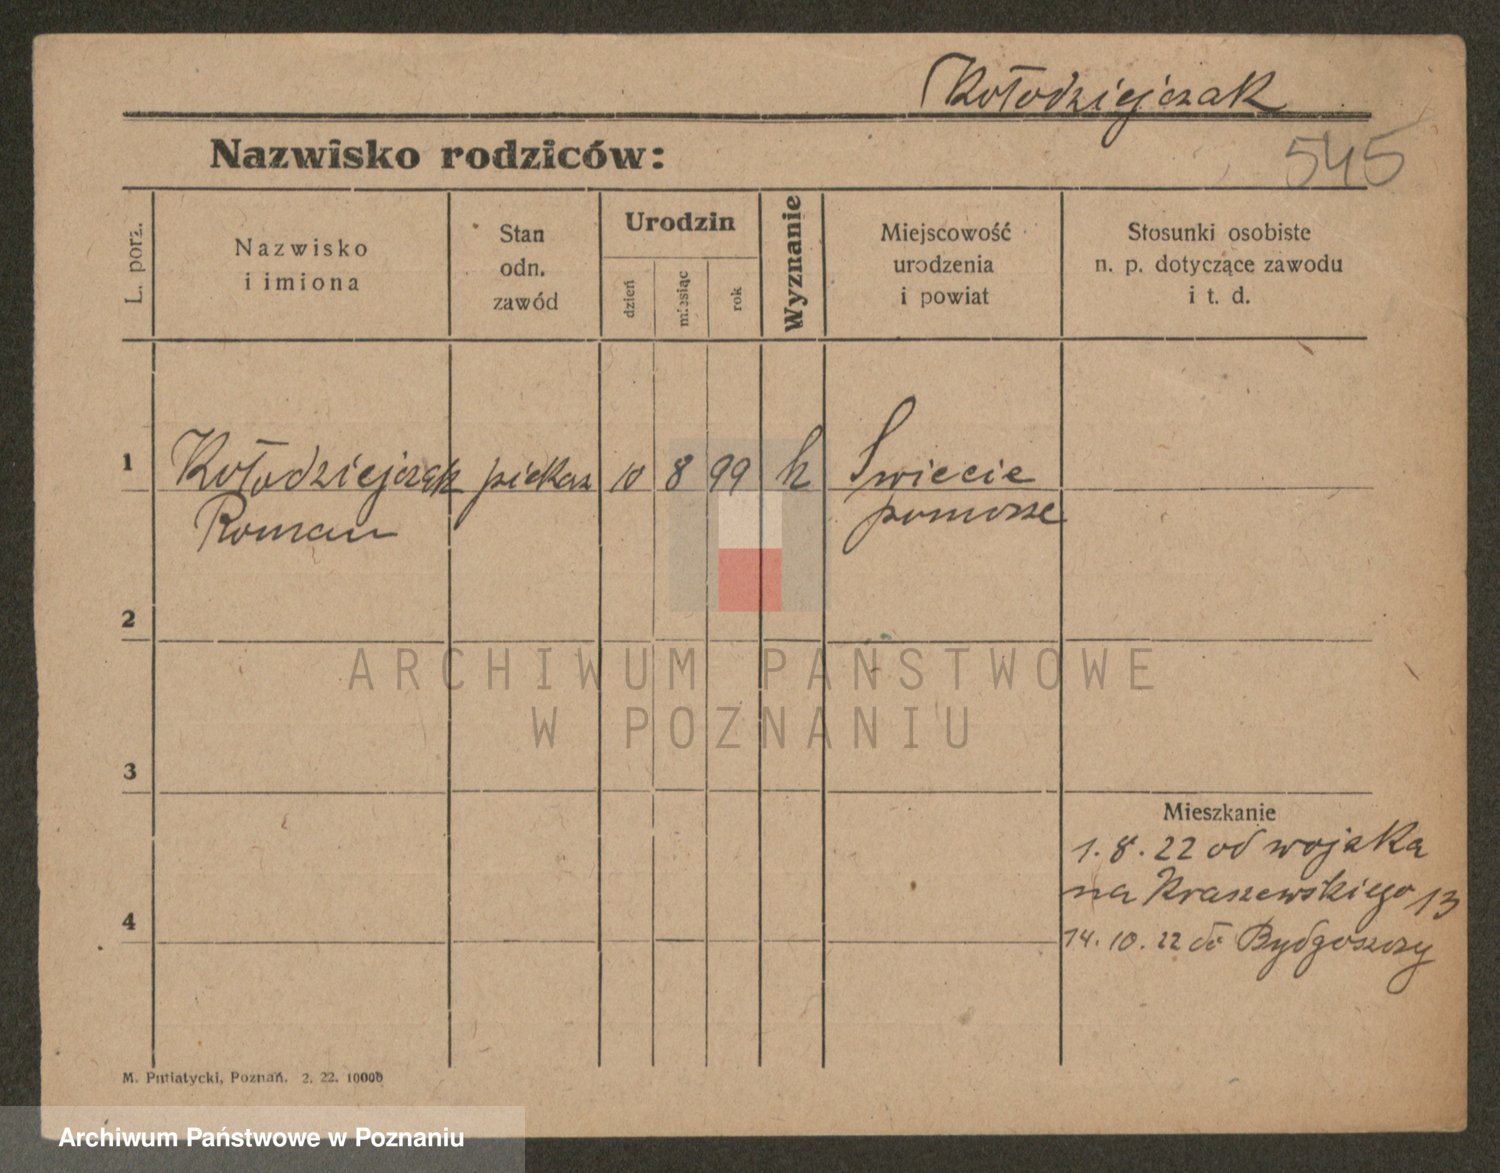 Kołodziejczak
Nazwisko rodziców:
545
L. porz.
Nazwisko
i imiona
Stan
odn.
zawód
Urodzin
dzień
miesiąc
rok
Wyznanie
Miejscowość
urodzenia
i powiat
Stosunki osobiste
n. p. dotyczące zawodu
i t. d.
1
Kołodziejczak piekarz 10 8 99 k Swiecie
Roman pomorze
2
ARCHIWUM PAŃSTWOWE
W POZNANIU
3
Mieszkanie
1.8.22 od wojska
na Kraszewskiego 13
4
14.10.22 do Bydgoszczy
M. Putiatycki, Poznań. 2. 22. 10000
Archiwum Państwowe w Poznaniu